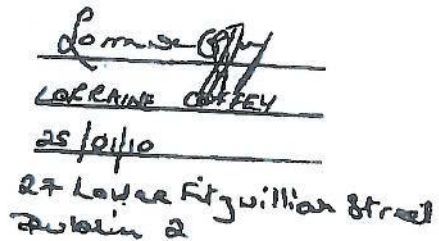 Lorraine Coffey
LORRAINE COFFEY
25/01/10
27 Lower Fitzwilliam Street
Dublin 2